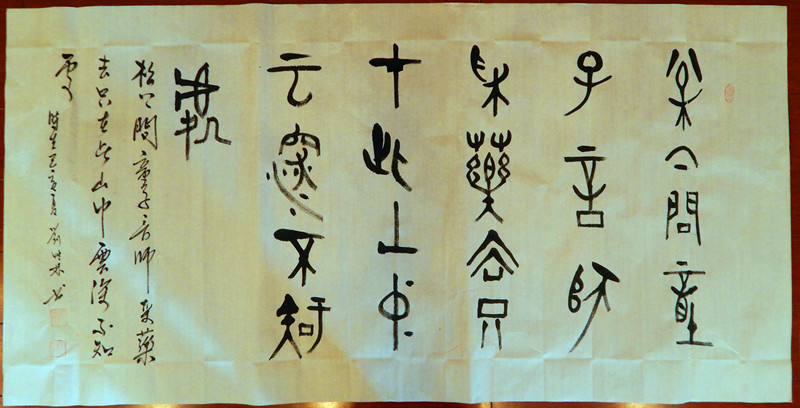 松下問童
子言師
采藥去只
在此山中
云深不知
處
松下問童子言師采藥
去只在此山中雲深不知
處
己亥夏 书